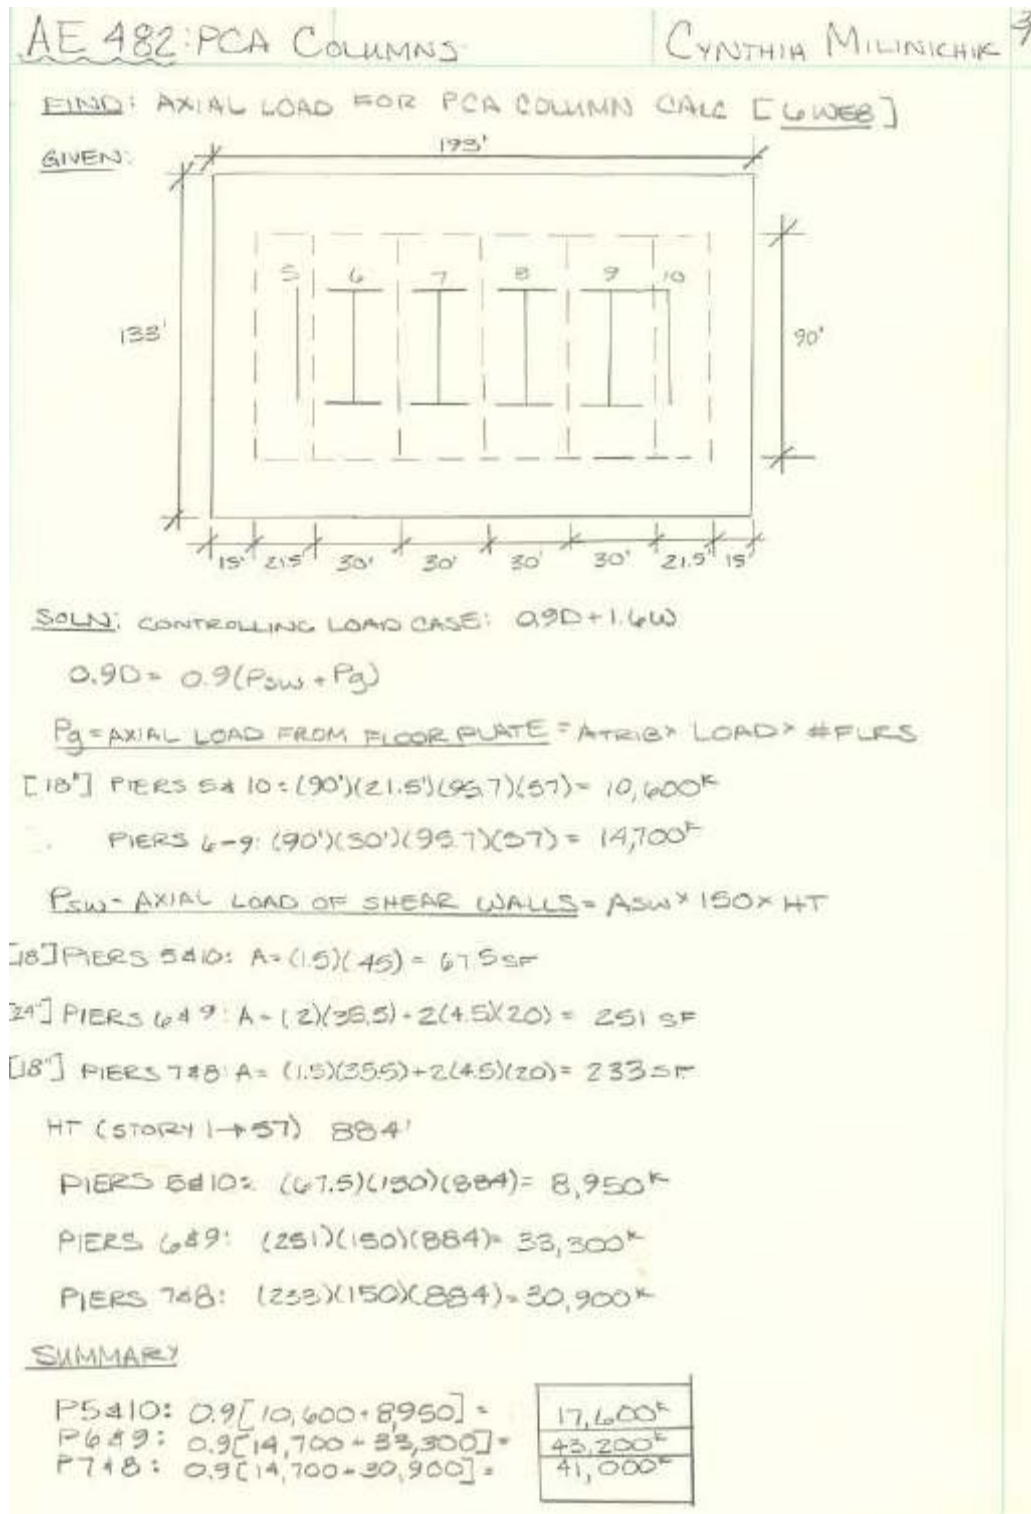 AE 482: PCA COLUMNS
CYNTHIA MILINICHIK
3/
FIND: AXIAL LOAD FOR PCA COLUMN CALC [6 WEB]
GIVEN:
193'
5 6 7 8 9 10
133'
90'
15' 21.5' 30' 30' 30' 30' 21.5' 15'
SOLN: CONTROLLING LOAD CASE: 0.9D+1.6W
0.9D= 0.9(Psw + Pg)
Pg = AXIAL LOAD FROM FLOOR PLATE = ATRIB × LOAD × #FLRS
[18"] PIERS 5 & 10: (90')(21.5')(95.7)(57) = 10,600ᵏ
PIERS 6-9: (90')(30')(95.7)(57) = 14,700ᵏ
Psw = AXIAL LOAD OF SHEAR WALLS = Asw × 150 × HT
[18"] PIERS 5 & 10: A = (1.5)(45) = 67.5 SF
[24"] PIERS 6 & 9: A = (2)(35.5) + 2(4.5)(20) = 251 SF
[18"] PIERS 7 & 8: A = (1.5)(35.5) + 2(4.5)(20) = 233 SF
HT (STORY 1→57) 884'
PIERS 5 & 10: (67.5)(150)(884) = 8,950ᵏ
PIERS 6 & 9: (251)(150)(884) = 33,300ᵏ
PIERS 7 & 8: (233)(150)(884) = 30,900ᵏ
SUMMARY
P5 & 10: 0.9[10,600 + 8,950] = 17,600ᵏ
P6 & 9: 0.9[14,700 + 33,300] = 43,200ᵏ
P7 & 8: 0.9[14,700 + 30,900] = 41,000ᵏ